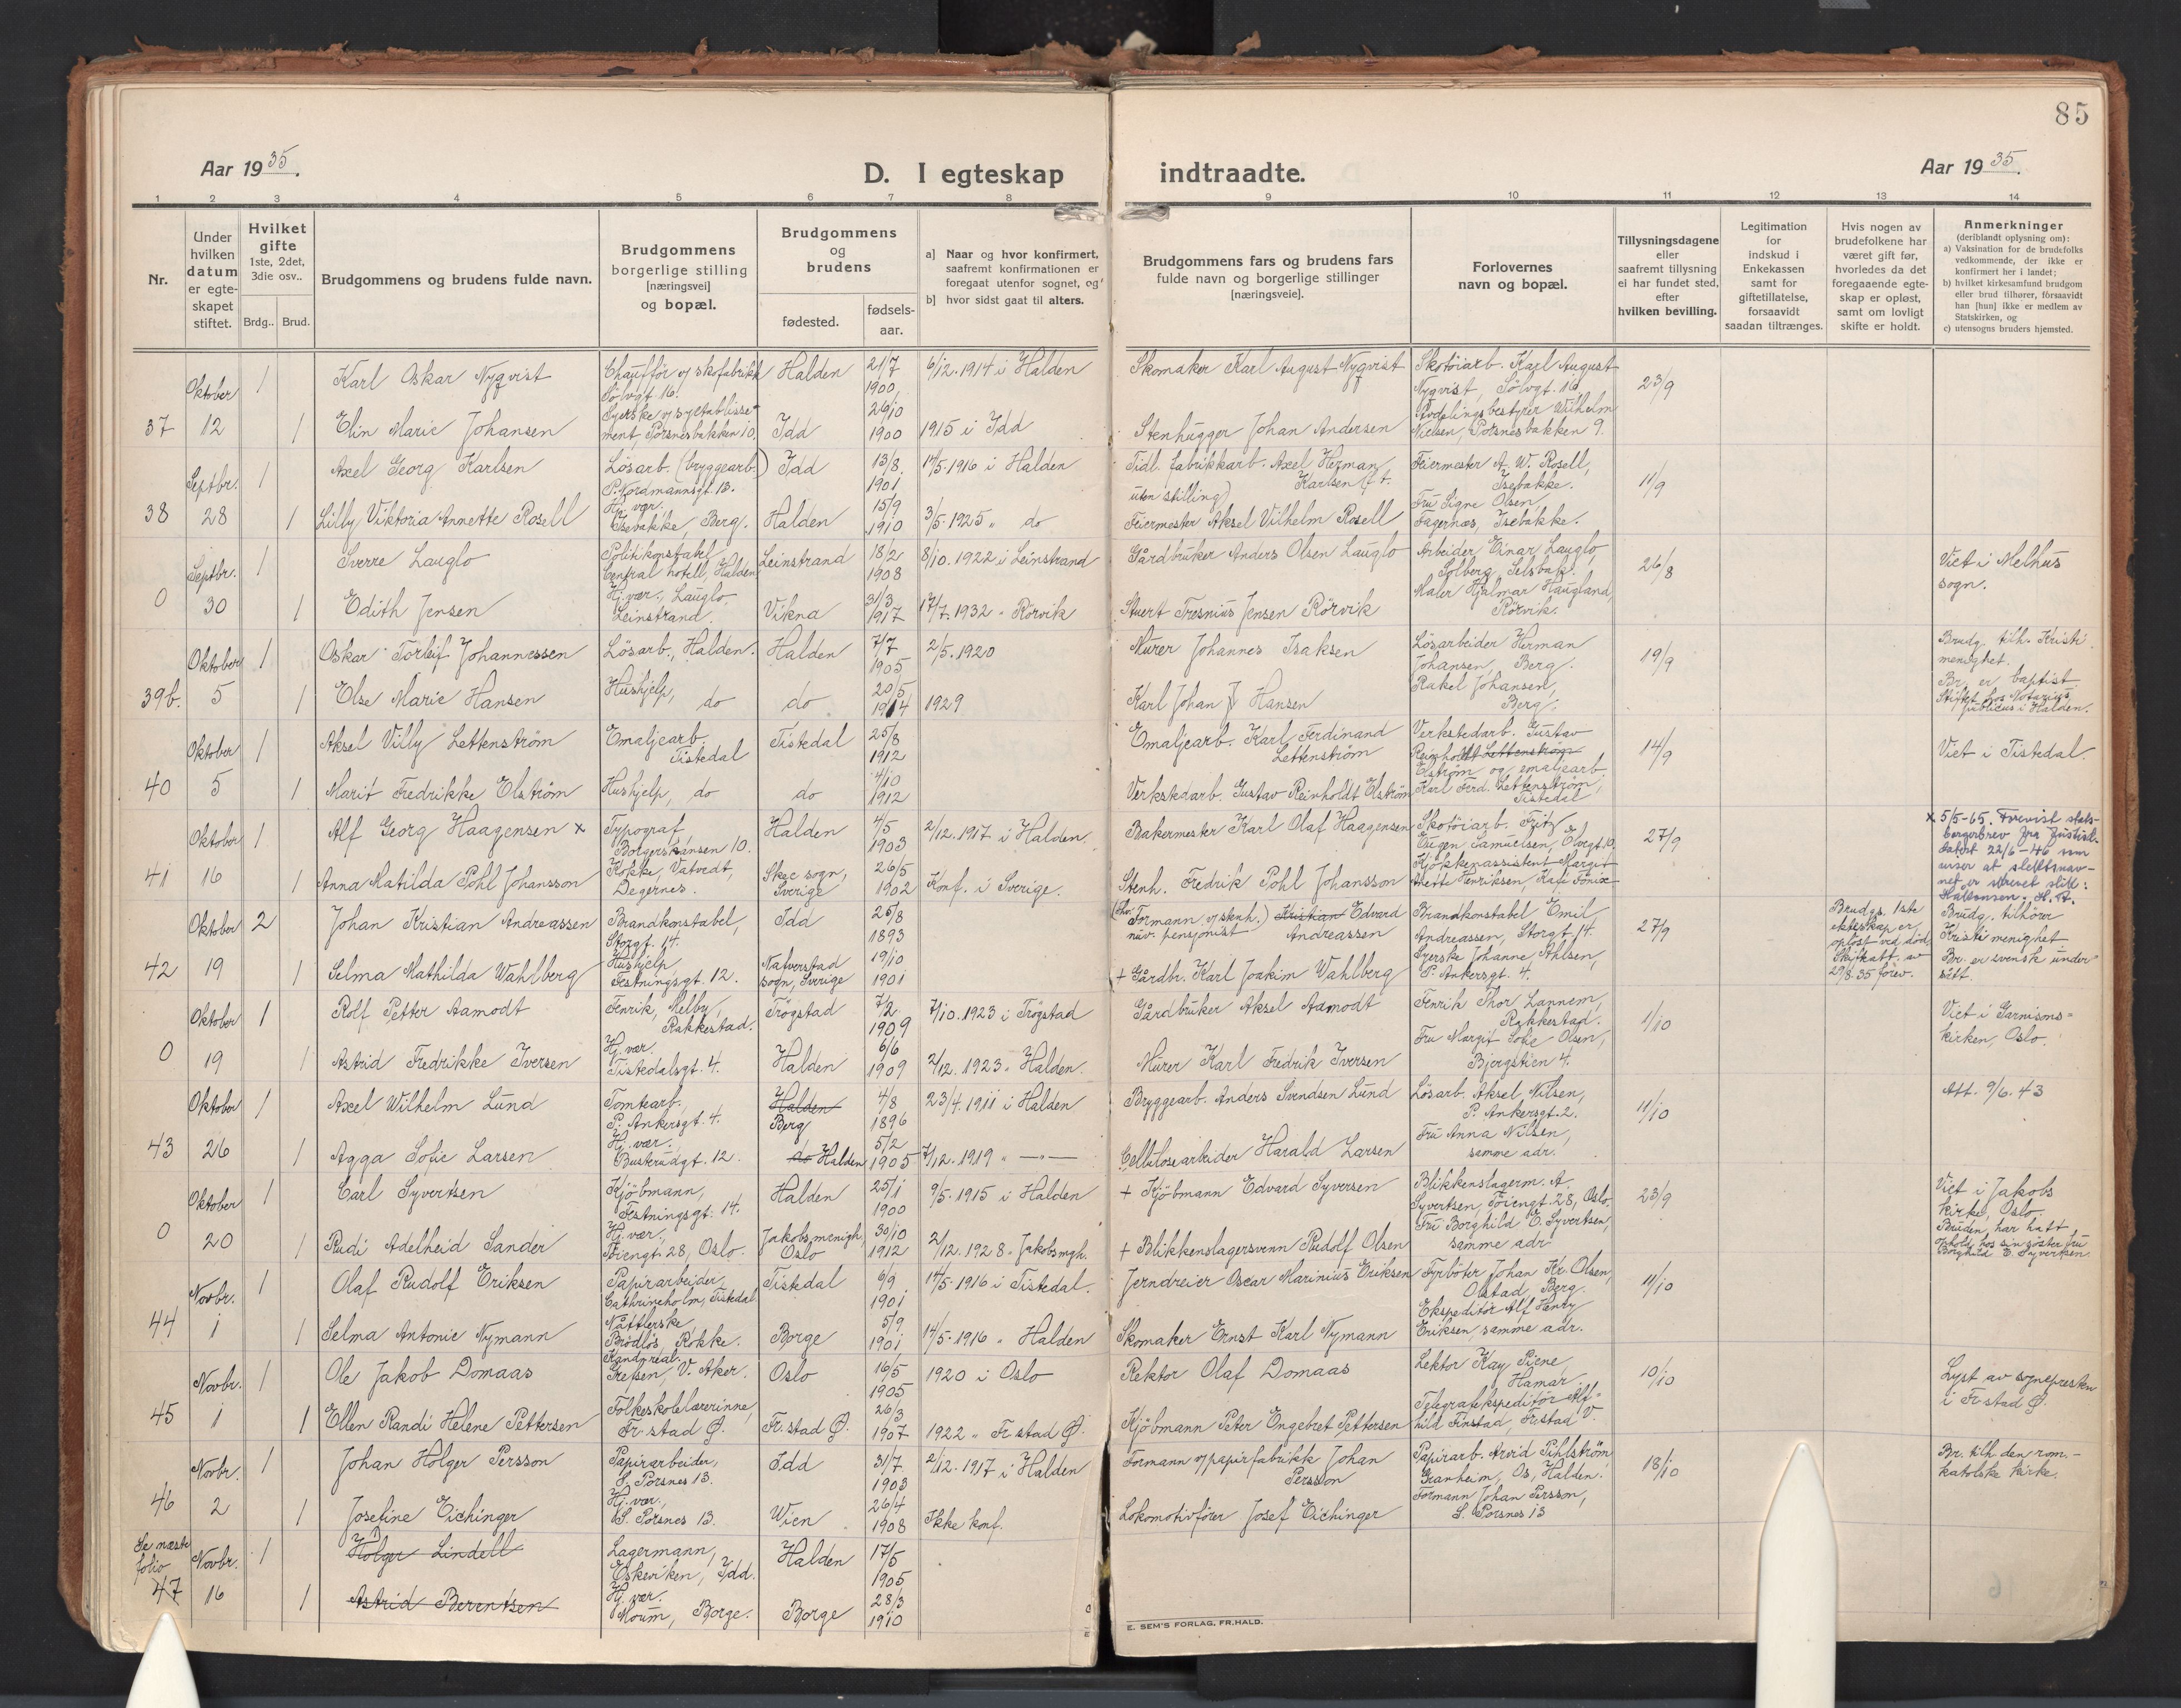 85
Aar 1935.
D. I egteskap indtraadte.
Aar 1935.
1 2 3 4 5 6 7 8 9 10 11 12 13 14
Nr.
Under hvilken datum er egte-skapet stiftet.
Hvilket gifte 1ste, 2det, 3die osv..
Brdg.. Brud.
Brudgommens og brudens fulde navn.
Brudgommens borgerlige stilling [næringsvei] og bopæl.
Brudgommens og brudens
fødested.
fødsels-aar.
a] Naar og hvor konfirmert, saafremt konfirmationen er foregaat utenfor sognet, og
b] hvor sidst gaat til alters.
Brudgommens fars og brudens fars fulde navn og borgerlige stillinger [næringsveie].
Forlovernes navn og bopæl.
Tillysningsdagene eller saafremt tillysning ei har fundet sted, efter hvilken bevilling.
Legitimation for indskud i Enkekassen samt for giftetillatelse, forsaavidt saadan tiltrænges.
Hvis nogen av brudefolkene har været gift før, hvorledes da det foregaaende egte-skap er opløst, samt om lovligt skifte er holdt.
Anmerkninger (deriblandt oplysning om):
a) Vaksination for de brudefolks vedkommende, der ikke er konfirmert her i landet;
b) hvilket kirkesamfund brudgom eller brud tilhører, forsaavidt han [hun] ikke er medlem av Statskirken, og
c) utensogns bruders hjemsted.
37 Oktober 12
1 Karl Oskar Nyqvist Chauffør v/ skofabrikk Sölvgt. 16. Halden 21/7 1900 6/12. 1914 i Halden Skomaker Karl August Nyqvist Skotöiarb. Karl August Nyqvist, Sölvgt. 16 23/9
1 Elin Marie Johansen Syerske v/ syetablisse-ment Porsnesbakken 10. Idd 26/10 1900 1915 i Idd Stenhugger Johan Andersen Avdelingsbestyrer Wilhelm Nielsen, Porsnesbakken 9.
38 Septbr. 28
1 Axel Georg Karlsen Lösarb. (bryggearb.) P. Nordmannsgt. 13. Idd 13/8. 1901 14/5. 1916 i Halden Tidl. fabrikkarb. Axel Herman Karlsen (f. t. uten stilling) Feiermester A. W. Rosell, Isebakke. 11/9
1 Lilly Viktoria Annette Rosell Hj. vær. Isebakke, Berg. Halden 15/9 1910 3/5. 1925 " do Feiermester Aksel Vilhelm Rosell Fru Signe Olsen, Fagernæs, Isebakke.
0 Septbr. 30
1 Sverre Lauglo Politikonstabel Central hotell, Halden Leinstrand 18/2 1908 8/10. 1922 i Leinstrand Gårdbruker Anders Olsen Lauglo Arbeider Einar Lauglo, Solberg, Selsbak. 26/8 Viet i Melhus sogn.
1 Edith Jensen Hj. vær., Lauglo, Leinstrand. Vikna 31/3 1917 17/7. 1932 " Rörvik Stuert Tresnius Jensen Rörvik Maler Hjalmar Haugland, Rörvik.
39b. Oktober 5
1 Oskar Torleif Johannessen Lösarb., Halden. Halden 7/7 1905 2/5. 1920 Murer Johannes Isaksen Lösarbeider Herman Johansen, Berg. 19/9 Brudg. tilh. Kristi menighet.
1 Else Marie Hansen Hushjelp, do do 20/5 1914 1929 Karl Johan Hansen Rakel Johansen, Berg. Br. er baptist Stiftet hos Notarius publicus i Halden.
40 Oktober 5
1 Aksel Villy Lettenström Emaljearb. Tistedal Tistedal 25/8 1912 Emaljearb. Karl Ferdinand Lettenström Verkstedarb. Gustav Reinholdt Lettenström Elström og emaljearb Karl Ferd. Lettenström, Tistedal 14/9 Viet i Tistedal.
1 Marit Fredrikke Elström Hushjelp, do do 4/10 1912 Verkstedarb. Gustav Reinholdt Elström
41 Oktober 16
1 Alf Georg Haagensen x Typograf, Borgerskansen 10. Halden 4/5 1903 2/12. 1917 i Halden. Bakermester Karl Olaf Haagensen Skotöiarb. Fritz Eugen Samuelsen, Elvegt. 10, 27/9 x 5/5-65. Forevist stats-borgerbrev fra Justisd. datert 22/6-46 som viser at slektsnav-net er skrevet slik:
1 Anna Matilda Pohl Johansson Kokke, Vatvedt, Degernes. Skee sogn, Sverige 26/5 1902 Konf. i Sverige. Stenh. Fredrik Pohl Johansson Kjökkenassistent Margit Anette Henriksen, Kafé Fönix
42 Oktober 19
2 Johan Kristian Andreassen Brandkonstabel, Storgt. 14. Idd 25/8 1893 Formann v/ stenh.) Kristian Edvard Andreassen nuv. pensjonist Brandkonstabel Emil Andreassen, Storgt. 14. 27/9 Brudgs. 1ste ekteskap er oplöst ved död, Skifteatt. av 29/8. 35 forev. Brudg. tilhörer Kristi menighet
1 Selma Mathilda Wahlberg Hushjelp Festningsgt. 12. Naverstad sogn, Sverige 19/10 1901 + Gårdbr. Karl Joakim Wahlberg Syerske Johanne Ahlsen, P. Ankersgt. 4. Br. er svensk under-sått.
0 Oktober 19
1 Rolf Petter Aamodt Fenrik, Melby, Rakkestad. Trögstad 7/2 1909 7/10. 1923 i Trögstad Gårdbruker Aksel Aamodt Fenrik Thor Lannem, Rakkestad. 1/10 Viet i Garnisons-kirken, Oslo.
1 Astrid Fredrikke Iversen Hj. vær. Tistedalsgt. 4. Halden 6/6 1909 2/12. 1923 " Halden. Murer Karl Fredrik Iversen Fru Margit Sofie Olsen, Bjergstien 4.
43 Oktober 26
1 Axel Wilhelm Lund Tomtearb., P. Ankersgt. 4. Halden Berg 4/8 1896 23/4. 1911 i Halden Bryggearb. Anders Svendsen Lund Lösarb. Aksel Nilsen, P. Ankersgt. 2. 11/10 Att. 9/6. 43
1 Agga Sofie Larsen Hj. vær. Buskrudgt. 12. do Halden 5/2 1905 7/12. 1919 " —"— Cellulosearbeider Harald Larsen Fru Anna Nilsen, samme adr.
0 Oktober 20
1 Carl Syvertsen Kjöbmann, Festningsgt. 14. Halden 25/1 1900 9/5. 1915 i Halden + Kjöbmann Edvard Syversen Blikkenslagerm. A. Syvertsen, Töiengt. 28, Oslo. 23/9 Viet i Jakobs kirke, Oslo.
1 Rudi Adelheid Sander Hj. vær., Töiengt 28, Oslo. Jakobs menigh, Oslo 30/10 1912 2/12. 1928 " Jakobs mgh. + Blikkenslagersvenn Rudolf Olsen Fru Borghild E. Syvertsen, samme adr Bruden har hatt ophold hos sin söster fru Borghild E. Syvertsen.
44 Novbr. 1
1 Olaf Rudolf Eriksen Papirarbeider, Cathrineholm, Tistedal Tistedal 6/9 1901 14/5. 1916 i Tistedal. Jerndreier Oscar Marinius Eriksen Fyrböter Johan Kr. Olsen, Olstad, Berg. 11/10
1 Selma Antonie Nymann Nåtlerske Brödlös, Rokke. Borge 5/9 1901 14/5. 1916 " Halden Skomaker Ernst Karl Nymann Ekspeditör Alf Henry Eriksen, samme adr.
45 Novbr. 1
1 Ole Jakob Domaas Kand. real. Grefsen, V. Aker. Oslo 16/5 1905 1920 i Oslo Rektor Olaf Domaas Lektor Kay Piene, Hamar. 10/10 Lyst av sognepresten i Fr.stad Ø.
1 Ellen Randi Helene Pettersen Folkeskolelærerinne, Fr.stad Ø. Fr.stad Ø. 26/3 1907 1922 " Fr.stad Ø. Kjöbmann Peter Engebret Pettersen Telegrafekspeditör Alf-hild Finstad, Fr.stad V.
46 Novbr. 2
1 Johan Holger Persson Papirarbeider, S. Porsnes 13. Idd 31/7 1903 2/12. 1917 i Halden Formann v/ papirfabrikk Johan Persson Papirarb. Arvid Pihlström, Granheim, Os, Halden. 18/10 Br. tilh. den rom.-katolske kirke.
1 Josefine Eichinger Hj. vær., S. Porsnes 13. Wien 26/4 1908 Ikke konf. Lokomotivförer Josef Eichinger Formann Johan Persson, S. Porsnes 13
Se næste folio 47 Novbr. 16
1 Holger Lindell Lagermann, Eskeviken, Idd. Halden 17/5 1905
1 Astrid Berentsen Hj. vær. Moum, Borge. Borge 28/3 1910
E. SEM'S FORLAG, FR.HALD.